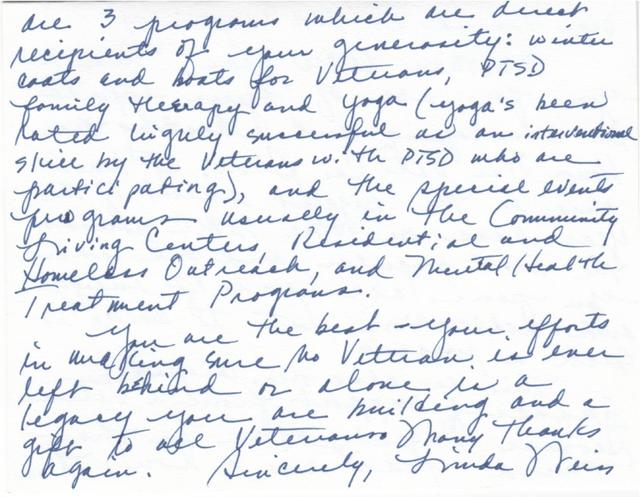 are 3 programs which are direct
recipients of your generosity: winter
coats and boots for Veterans, PTSD
family therapy and yoga (yoga's been
rated highly successful as an interventional
skill by the Veterans with PTSD who are
participating), and the special events
programs usually in the Community
Living Centers, Residential and
Homeless Outreach, and Mental Health
Treatment Programs.
You are the best - your efforts
in making sure no Veteran is ever
left behind or alone is a
legacy you are building and a
gift to all Veterans. Many thanks
again. Sincerely, Linda Weis